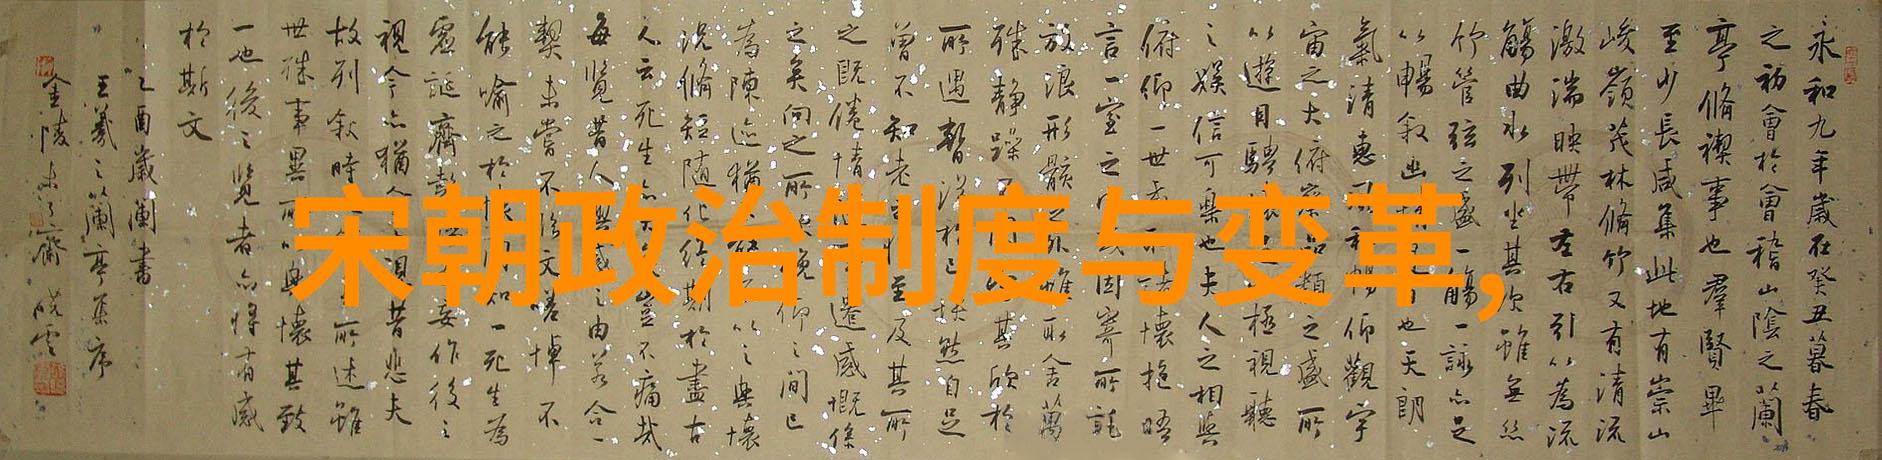 宋朝政治制度与变革,
永和九年歲在癸丑暮春
之初會於會稽山陰之蘭
亭脩禊事也羣賢畢
至少長咸集此地有崇山
峻嶺茂林脩竹又有清流
激湍映帶左右引以為流
觴曲水列坐其次雖無絲
竹管弦之盛一觴一詠亦足
以暢敘幽也天朗
氣清惠風和暢仰觀宇
宙之大俯察品類之盛所
以遊目騁懷極視聽
之娛信可樂也夫人之相與
俯仰一世懷抱悟
言一室之因寄所託
放浪形骸之外雖取舍萬
殊靜躁不同當其欣於
所遇暫得於己然自足
曾不知老之將至及其所
之既倦情遷感慨係
之矣向之所俛仰之間已
為陳迹猶以之興懷
況脩短随化終期於盡古
人云死生亦大矣豈不痛哉
每覽昔人興感之由若合一
契未嘗不臨文嗟悼不
能喻之於知一死生為
虛誕齊彭妄作後之
視今亦猶今視昔悲夫
故列敘時人所述雖
世殊事異所以興懷其致
一也後之覽者亦將有感
於斯文
乙酉歲蘭書
王羲之蘭亭集序
金陵齋